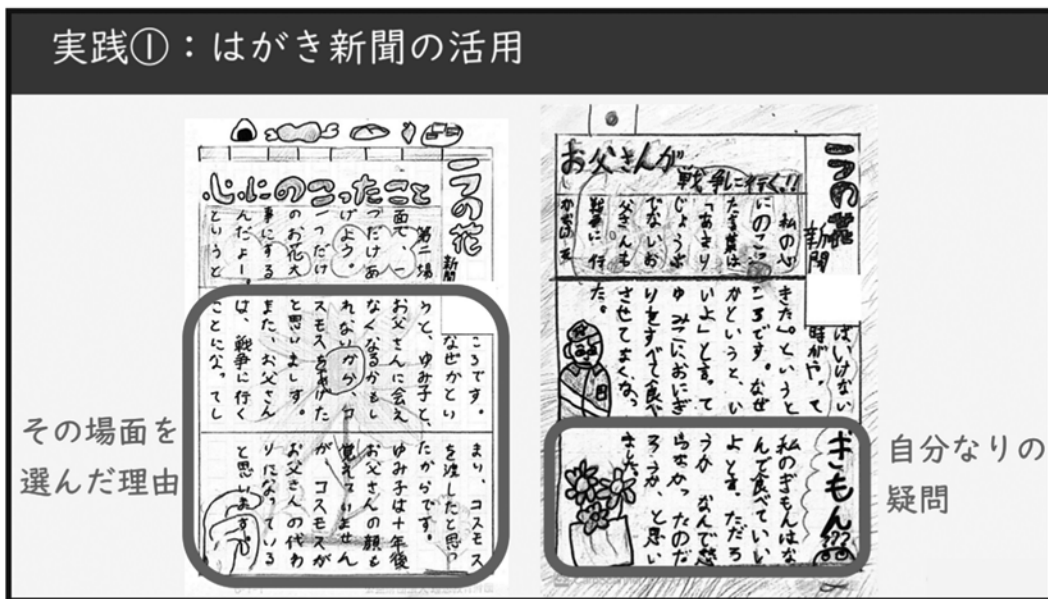 実践①：はがき新聞の活用
その場面を
選んだ理由
一つの花
新聞
心にのこったこと
第二場
面で、一
つだけあ
げよう。
一つだけ
のお花大
事にする
んだよー。
というと
ころです。
なぜかとい
うと、ゆみ子と、
お父さんに会え
なくなるかもし
れないから、コ
スモスをあげた
と思いました。
また、お父さん
は、戦争に行く
ことになってし
まい、コスモス
を渡したと思っ
たからです。
ゆみ子は十年後
お父さんの顔も
覚えていません
が、コスモスが
お父さんの代わ
りになっている
と思います。
一つの花
新聞
お父さんが
戦争に行く!!
私の心
にのこっ
た言葉は
「あまり
じょうぶ
でないお
父さんも
戦争に行
ばいけない
時がやって
きた」。というと
ころです。なぜ
かというと、い
いよ」と言って
ゆみこにおにぎ
りをすべて食べ
させて
た。
ぎもん
私のぎもんはな
んで食べていい
よと ただろ
うか なんで怒
らなかったのだ
ろうか、と思い
ました。
自分なりの
疑問